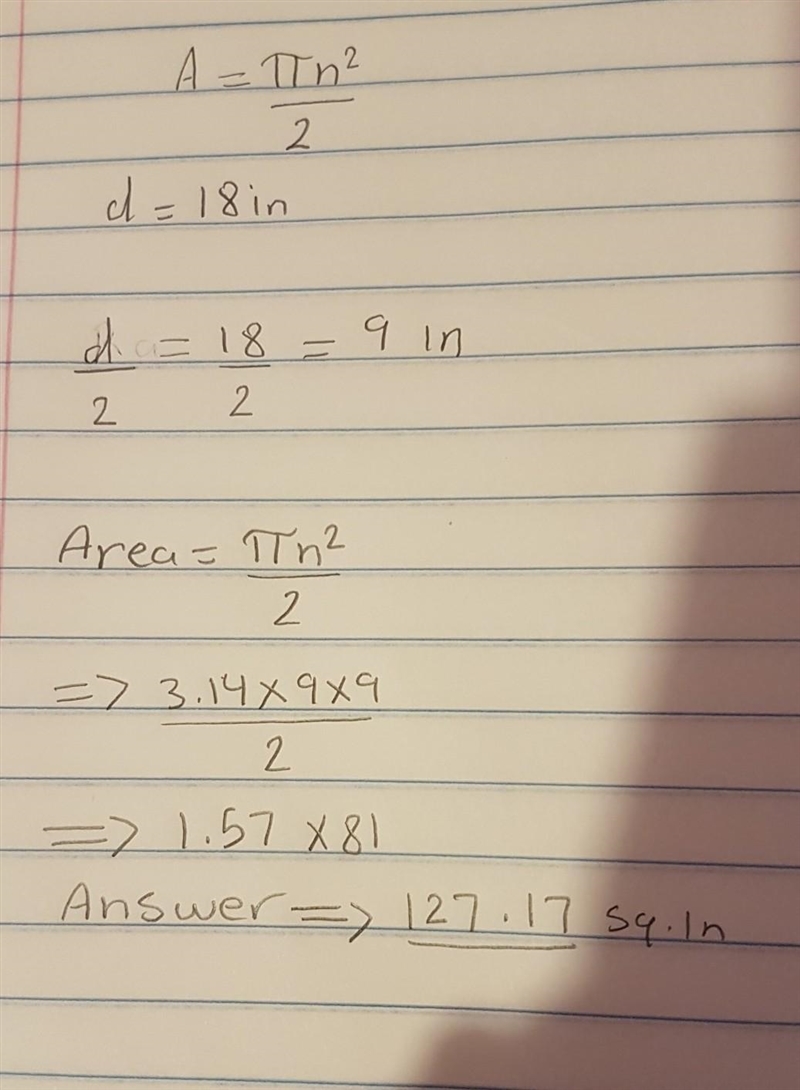 A = πn²/2
d = 18 in
d/2 = 18/2 = 9 in
Area = πn²/2
=> 3.14 x 9 x 9/2
=> 1.57 x 81
Answer => 127.17 sq. In